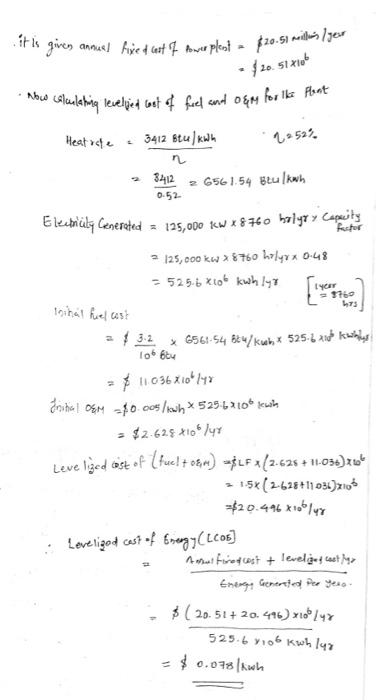 . it is given annual fixed cost of Power plant = $20.51 million/year
= $20.51×10⁶
• Now calculating levelized cost of fuel and O&M for the Plant
Heat rate = 3412 Btu/kWh / η    η=52%
= 3412 / 0.52 = 6561.54 Btu/kwh
Electricity Generated = 125,000 KW × 8760 hr/yr × Capacity Factor
= 125,000 kw × 8760 hr/yr × 0.48
= 525.6 ×10⁶ kwh/yr [1 year = 8760 hrs]
Initial fuel cost
= $ 3.2 / 10⁶ Btu × 6561.54 Btu/kwh × 525.6 ×10⁶ kwh/yr
= $ 11.036×10⁶/yr
Initial O&M = $0.005/kwh × 525.6×10⁶ kwh
= $2.628 ×10⁶/yr
Levelized cost of (fuel + o&m) = $LF × (2.628 + 11.036)×10⁶
= 1.5× (2.628+11.036)×10⁶
= $20.496 ×10⁶/yr
∴ Levelized cost of Energy (LCOE)
= Annual fixed cost + levelized cost/yr / Energy Generated Per year.
= $ (20.51 + 20.496) ×10⁶/yr / 525.6 ×10⁶ kwh/yr
= $ 0.078/kwh